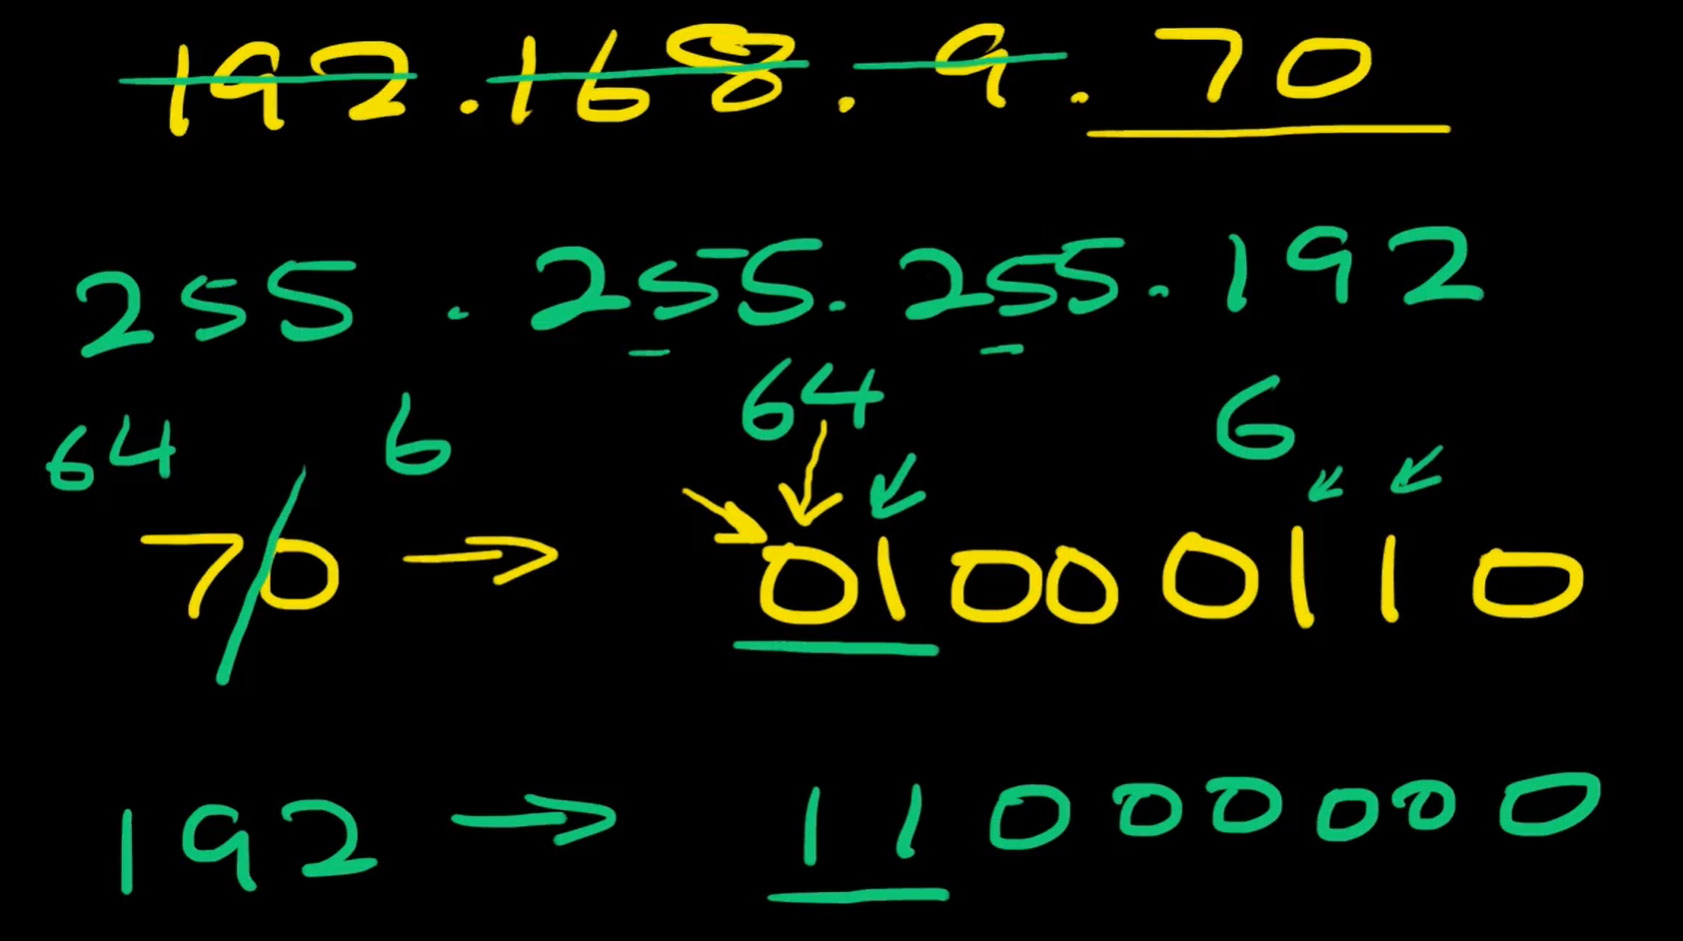 192.168.9.70
255.255.255.192
64 6 64 6
70 → 01000110
192 → 11000000